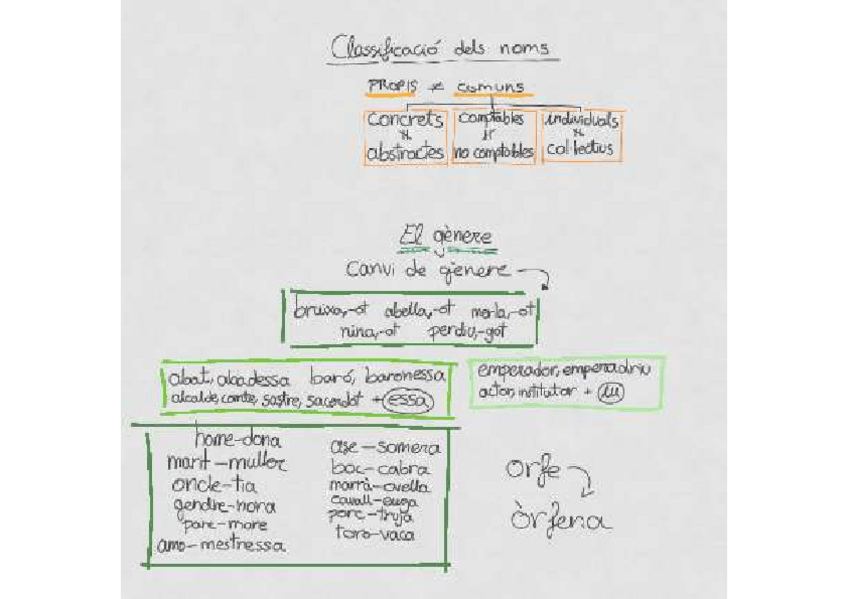 Classificació dels noms
PROPIS ≠ comuns
concrets ≠ abstractes
comptables ≠ no comptables
individuals ≠ col·lectius
El gènere
Canvi de gènere
bruixa,-ot abella,-ot merla,-ot
nina,-ot perdiu,-got
abat, abadessa baró, baronessa
alcalde, comte, sastre, sacerdot + essa
emperador, emperadriu
actor, institutor + iu
home-dona
marit-muller
oncle-tia
gendre-nora
pare-mare
amo-mestressa
ase-somera
boc-cabra
marrà-ovella
cavall-euga
porc-truja
toro-vaca
orfe
òrfena